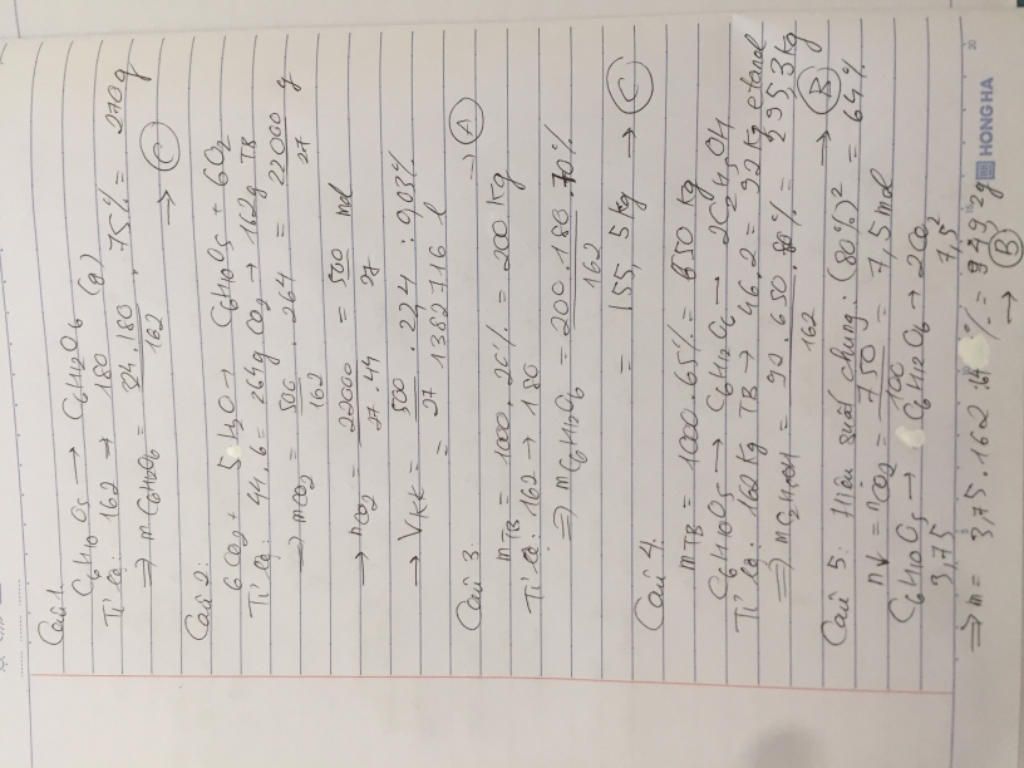 Câu 1.
C6H10O5 → C6H12O6 (g)
Tỉ lệ: 162 → 180
⇒ mC6H12O6 = 324.180/162 . 75% = 270g
→ C
Câu 2:
6CO2 + 5H2O → C6H10O5 + 6O2
Tỉ lệ: 44.6 = 264g CO2 → 162g TB
→ mCO2 = 500/162 . 264 = 22000/27 g
→ nCO2 = 22000/27.44 = 500/27 mol
→ VKK = 500/27 . 22,4 : 0,03%
= 1382716 l → A
Câu 3:
mTB = 1000.20% = 200 kg
Tỉ lệ: 162 → 180
⇒ mC6H12O6 = 200.180/162 . 70%
= 155,5 kg → C
Câu 4.
mTB = 1000.65% = 650 kg
C6H10O5 → C6H12O6 → 2C2H5OH
Tỉ lệ: 162kg TB → 46.2 = 92 kg etanol
⇒ mC2H5OH = 92.650.80%/162 = 295,3kg
→ B
Câu 5: Hiệu suất chung: (80%)² = 64%
n↓ = nCO2 = 750/100 = 7,5 mol
C6H10O5 → C6H12O6 → 2CO2
3,75 7,5
⇒ m = 3,75.162 : 64% = 949,2g
→ B
HONG HA